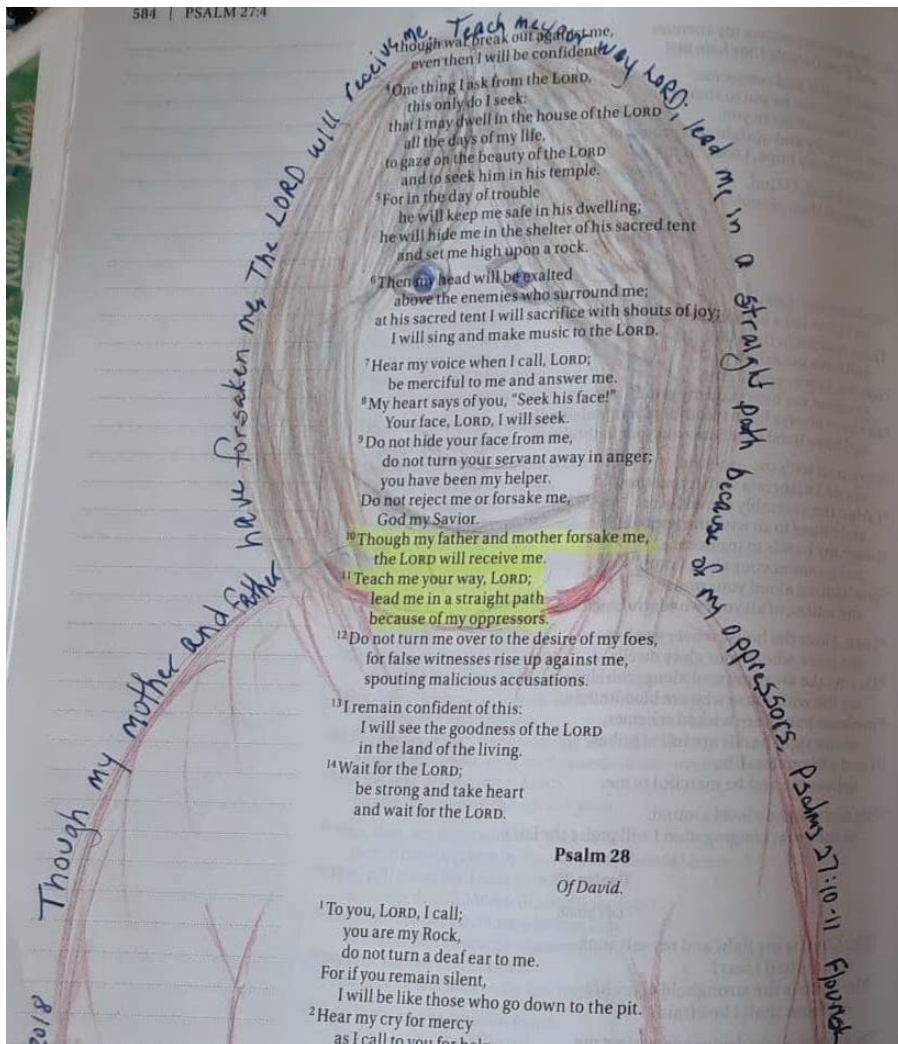 584 | PSALM 27:4
though war break out against me,
even then I will be confident.
4One thing I ask from the LORD,
this only do I seek:
that I may dwell in the house of the LORD
all the days of my life,
to gaze on the beauty of the LORD
and to seek him in his temple.
5For in the day of trouble
he will keep me safe in his dwelling;
he will hide me in the shelter of his sacred tent
and set me high upon a rock.
6Then my head will be exalted
above the enemies who surround me;
at his sacred tent I will sacrifice with shouts of joy;
I will sing and make music to the LORD.
7Hear my voice when I call, LORD;
be merciful to me and answer me.
8My heart says of you, "Seek his face!"
Your face, LORD, I will seek.
9Do not hide your face from me,
do not turn your servant away in anger;
you have been my helper.
Do not reject me or forsake me,
God my Savior.
10Though my father and mother forsake me,
the LORD will receive me.
11Teach me your way, LORD;
lead me in a straight path
because of my oppressors.
12Do not turn me over to the desire of my foes,
for false witnesses rise up against me,
spouting malicious accusations.
13I remain confident of this:
I will see the goodness of the LORD
in the land of the living.
14Wait for the LORD;
be strong and take heart
and wait for the LORD.
Psalm 28
Of David.
1To you, LORD, I call;
you are my Rock,
do not turn a deaf ear to me.
For if you remain silent,
I will be like those who go down to the pit.
2Hear my cry for mercy
as I call to you for help
Though my mother and father have forsaken me, The LORD will receive me. Teach me your way LORD; lead me in a straight path because of my oppressors. Psalms 27:10-11 Flourish
2018